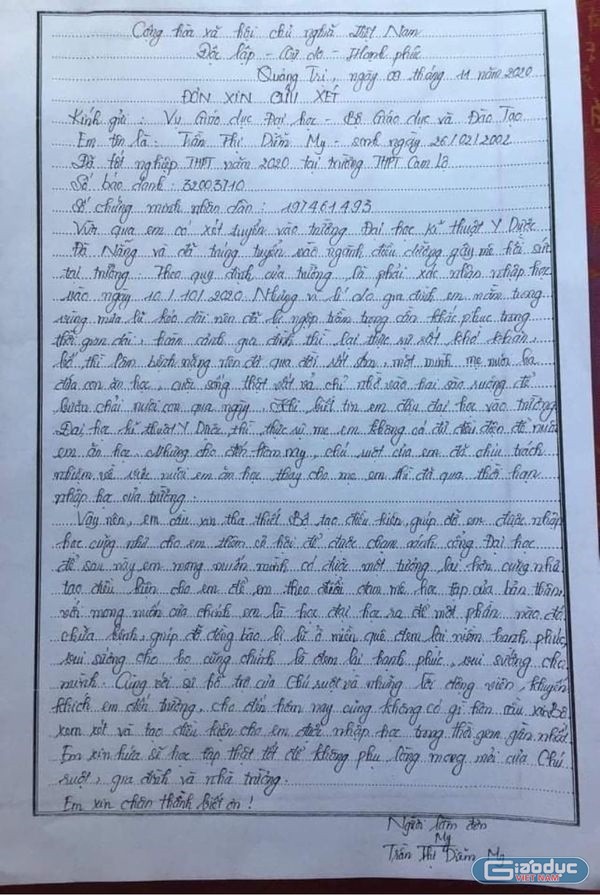 Cộng hòa xã hội chủ nghĩa Việt Nam
Độc lập - Tự do - Hạnh phúc
Quảng Trị, ngày 09 tháng 11 năm 2020
ĐƠN XIN CỨU XÉT
Kính gửi: Vụ Giáo dục Đại học - Bộ Giáo dục và Đào Tạo
Em tên là: Trần Thị Diễm My - sinh ngày 26/02/2002
Đã tốt nghiệp THPT năm 2020 tại trường THPT Cam Lộ
Số báo danh: 32003710
Số chứng minh nhân dân: 197461493
Vừa qua em có xét tuyển vào trường Đại học kĩ thuật Y Dược
Đà Nẵng và đã trúng tuyển vào ngành điều dưỡng gây mê hồi sức
tại trường. Theo quy định của trường là phải xác nhận nhập học
vào ngày 10/10/2020. Nhưng vì lí do gia đình em nằm trong
vùng mưa lũ kéo dài nên đã bị ngập trầm trọng cần khắc phục trong
thời gian dài, hoàn cảnh gia đình thì lại thực sự rất khó khăn,
bố thì lâm bệnh nặng nên đã qua đời rất sớm, một mình mẹ nuôi ba
đứa con ăn học, cuộc sống thật vất vả chỉ nhờ vào hai sào ruộng để
bươn chải nuôi con qua ngày. Khi biết tin em đậu đại học vào trường
Đại học kĩ thuật Y Dược, thì thực sự mẹ em không có đủ điều kiện để nuôi
em ăn học. Nhưng cho đến hôm nay, chú ruột của em đã chịu trách
nhiệm về việc nuôi em ăn học thay cho mẹ em thì đã qua thời hạn
nhập học của trường.
Vậy nên, em cầu xin tha thiết Bộ tạo điều kiện, giúp đỡ em được nhập
học cũng như cho em thêm cơ hội để được chạm cánh cổng Đại học
để sau này em mong muốn mình có được một tương lai hơn cũng như
tạo điều kiện cho em để em theo đuổi đam mê học tập của bản thân,
với mong muốn của chính em là học đại học ra để một phần nào đó
chữa bệnh, giúp đỡ đồng bào bị lũ ở miền quê đem lại niềm hạnh phúc,
vui sướng cho họ cũng chính là đem lại hạnh phúc, vui sướng cho
mình. Cùng với sự hỗ trợ của Chú ruột và những lời động viên, khuyến
khích em đến trường, cho đến hôm nay cũng không có gì hơn cầu xin Bộ
xem xét và tạo điều kiện cho em được nhập học trong thời gian gần nhất
Em xin hứa sẽ học tập thật tốt để không phụ lòng mong mỏi của Chú
ruột, gia đình và nhà trường.
Em xin chân thành biết ơn!
Người làm đơn
My
Trần Thị Diễm My
Giáo dục
VIỆT NAM